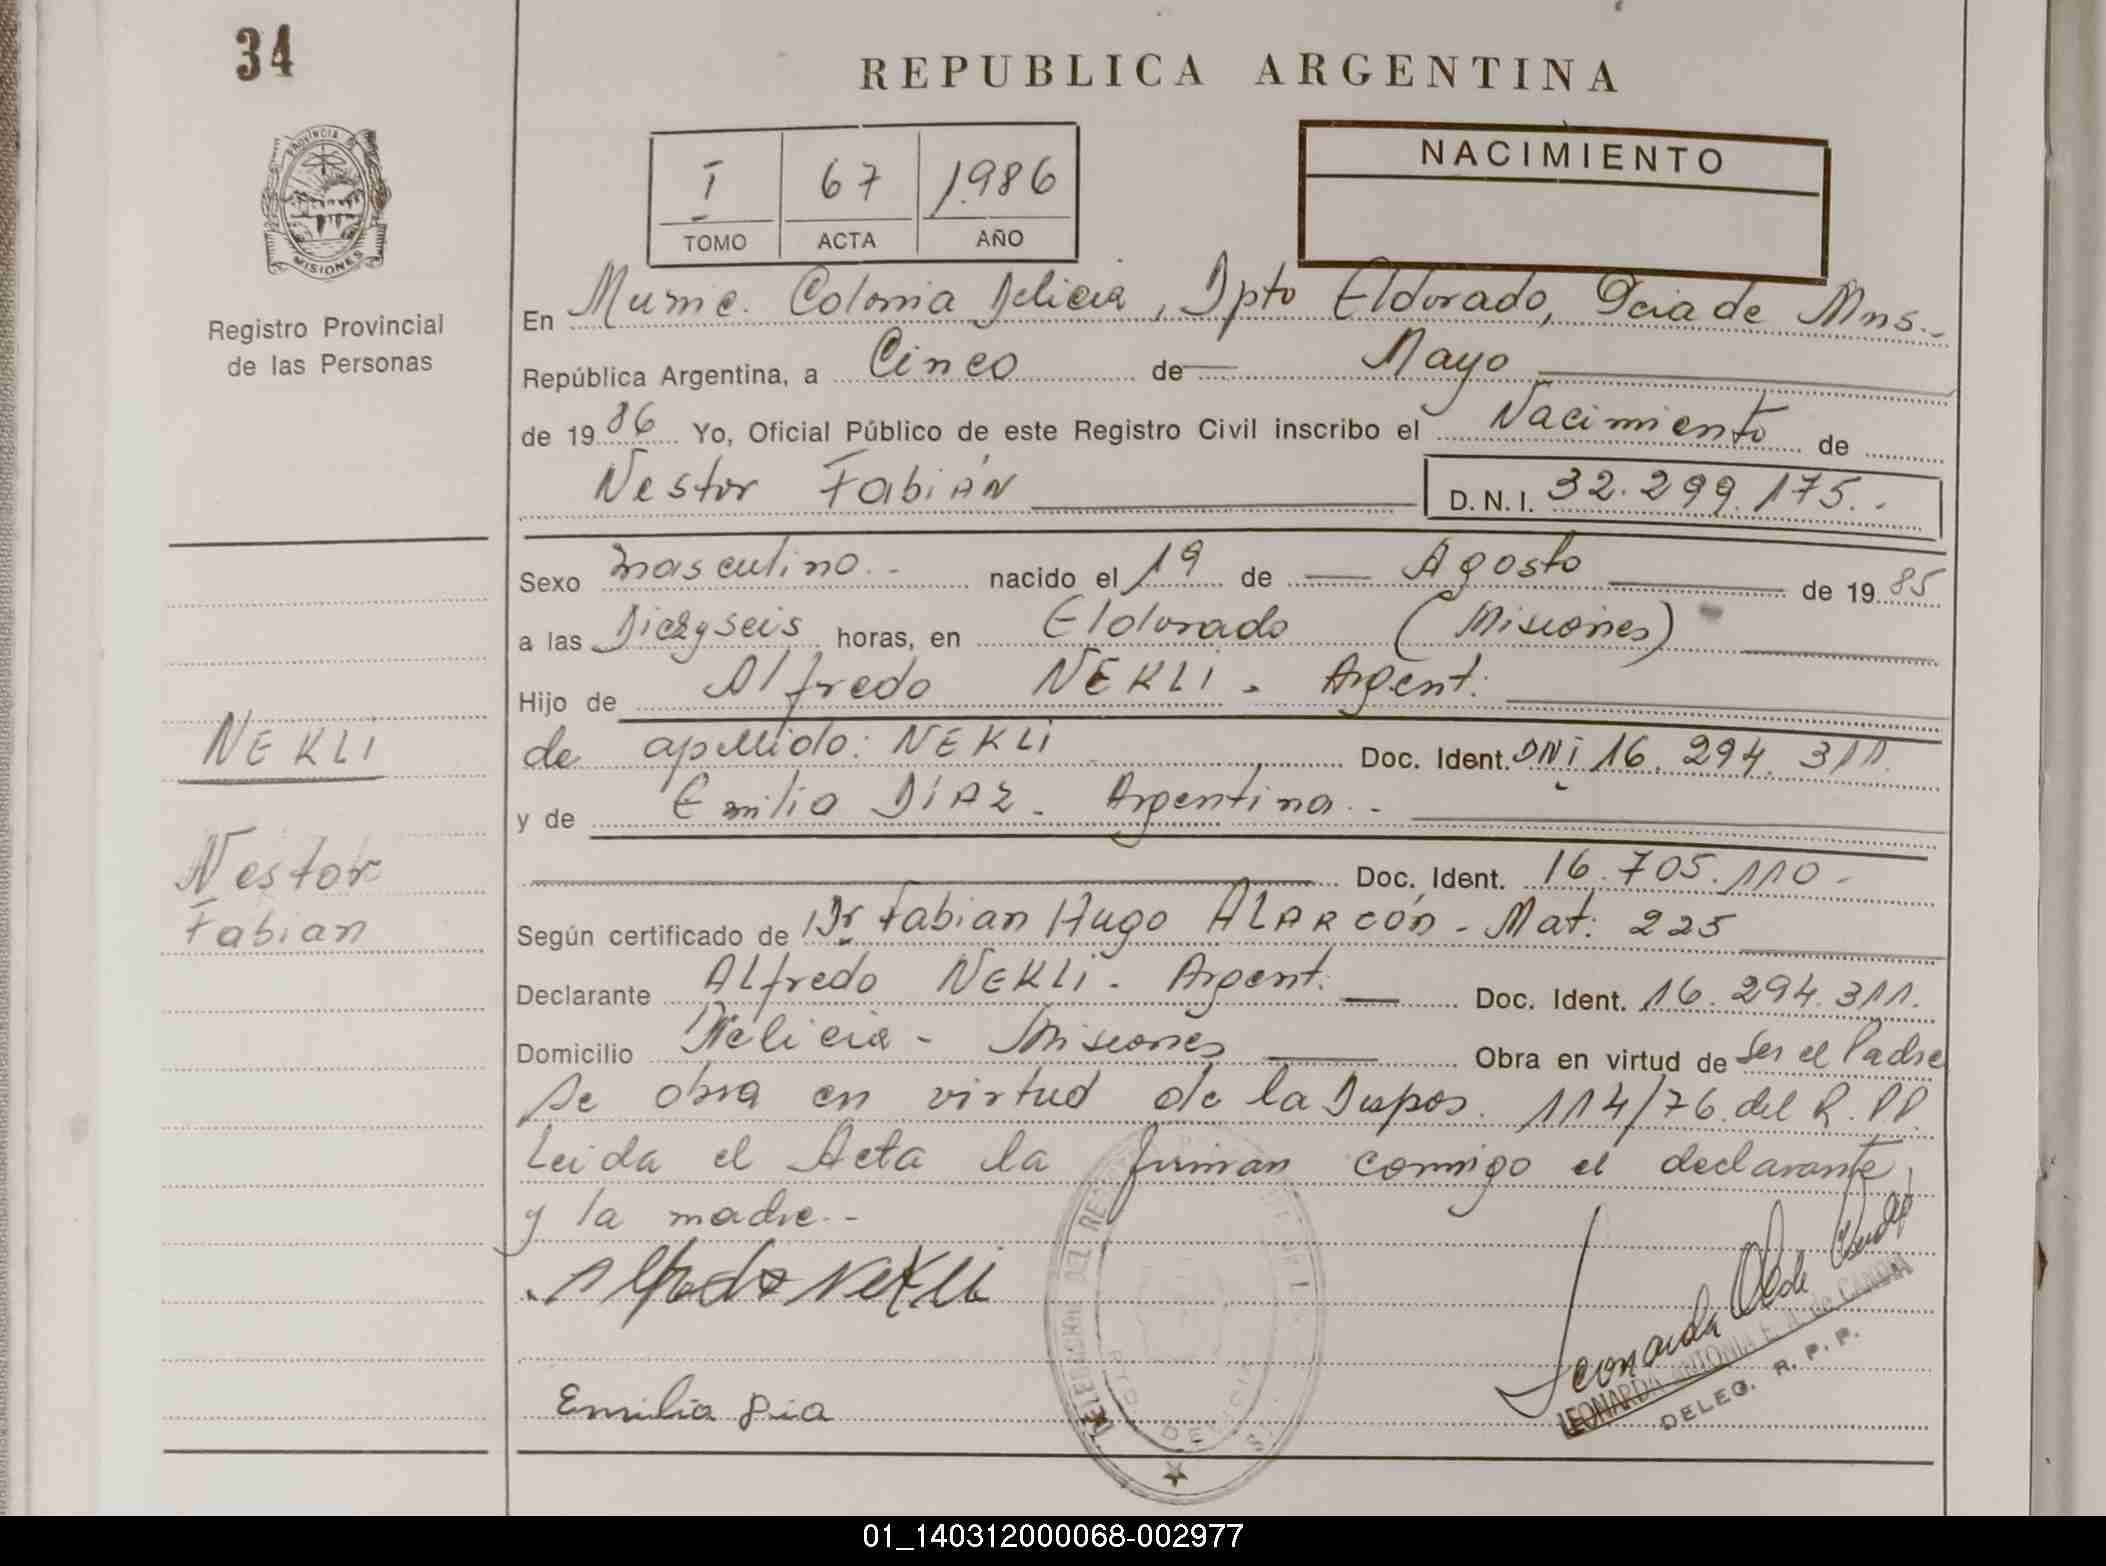 34
REPUBLICA ARGENTINA
PROVINCIA DE
MISIONES
Registro Provincial
de las Personas
I 67 1.986
TOMO ACTA AÑO
NACIMIENTO
En Munic. Colonia Delicia, Dpto Eldorado, Pcia de Mns.-
República Argentina, a Cinco de Mayo
de 19 86 Yo, Oficial Público de este Registro Civil inscribo el Nacimiento de
Nestor Fabián D. N. I. 32.299.175.-
Sexo masculino.- nacido el 19 de Agosto de 19 85
a las Diezyseis horas, en Eldorado (Misiones)
Hijo de Alfredo NEKLI. Argent.
de apellido: NEKLI Doc. Ident. DNI 16.294.311.
y de Emilia DÍAZ - Argentina.-
Doc. Ident. 16.705.110.-
Según certificado de Dr Fabian Hugo ALARCÓN - Mat: 225
Declarante Alfredo NEKLI. Argent. Doc. Ident. 16.294.311.
Domicilio Delicia - Misiones Obra en virtud de ser el Padre
Se obra en virtud de la Dispos. 114/76 del R.PP.
Leida el Acta la firman conmigo el declarante,
y la madre.-
NEKLI
Nestor
Fabian
Alfredo Nekli
Emilia Dia
Leonarda
LEONARDA ANTONIA E. A. de
DELEG. R. P. P.
DELEGACION DEL
01_140312000068-002977